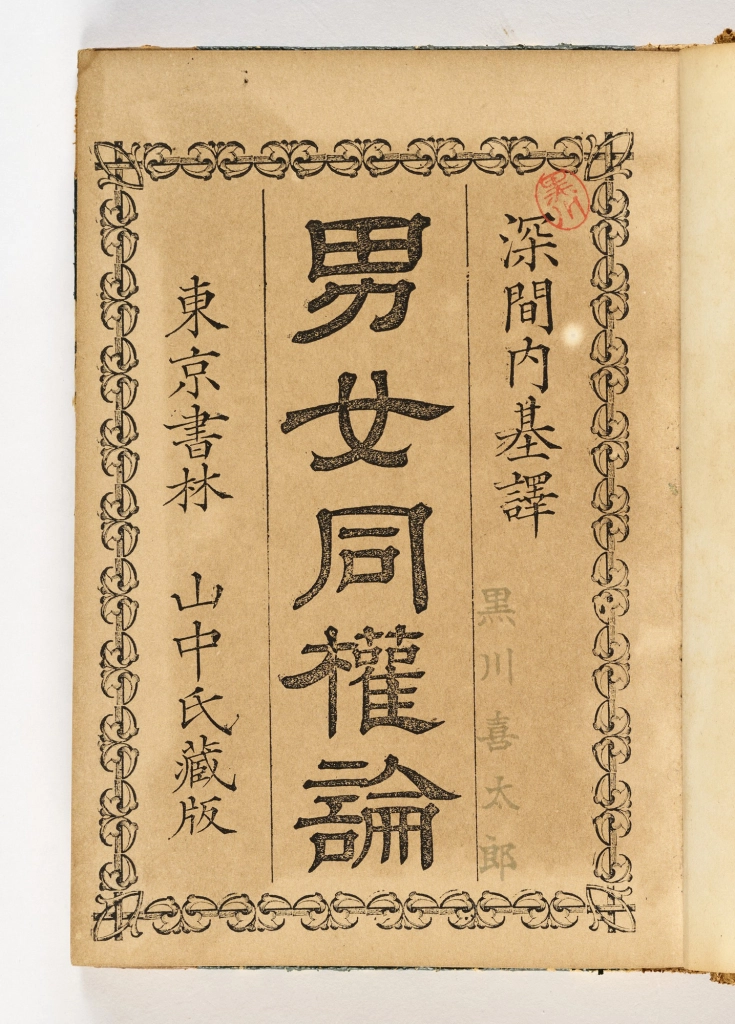 深間内基譯
黒川
黒川喜太郎
男女同權論
東京書林 山中氏藏版